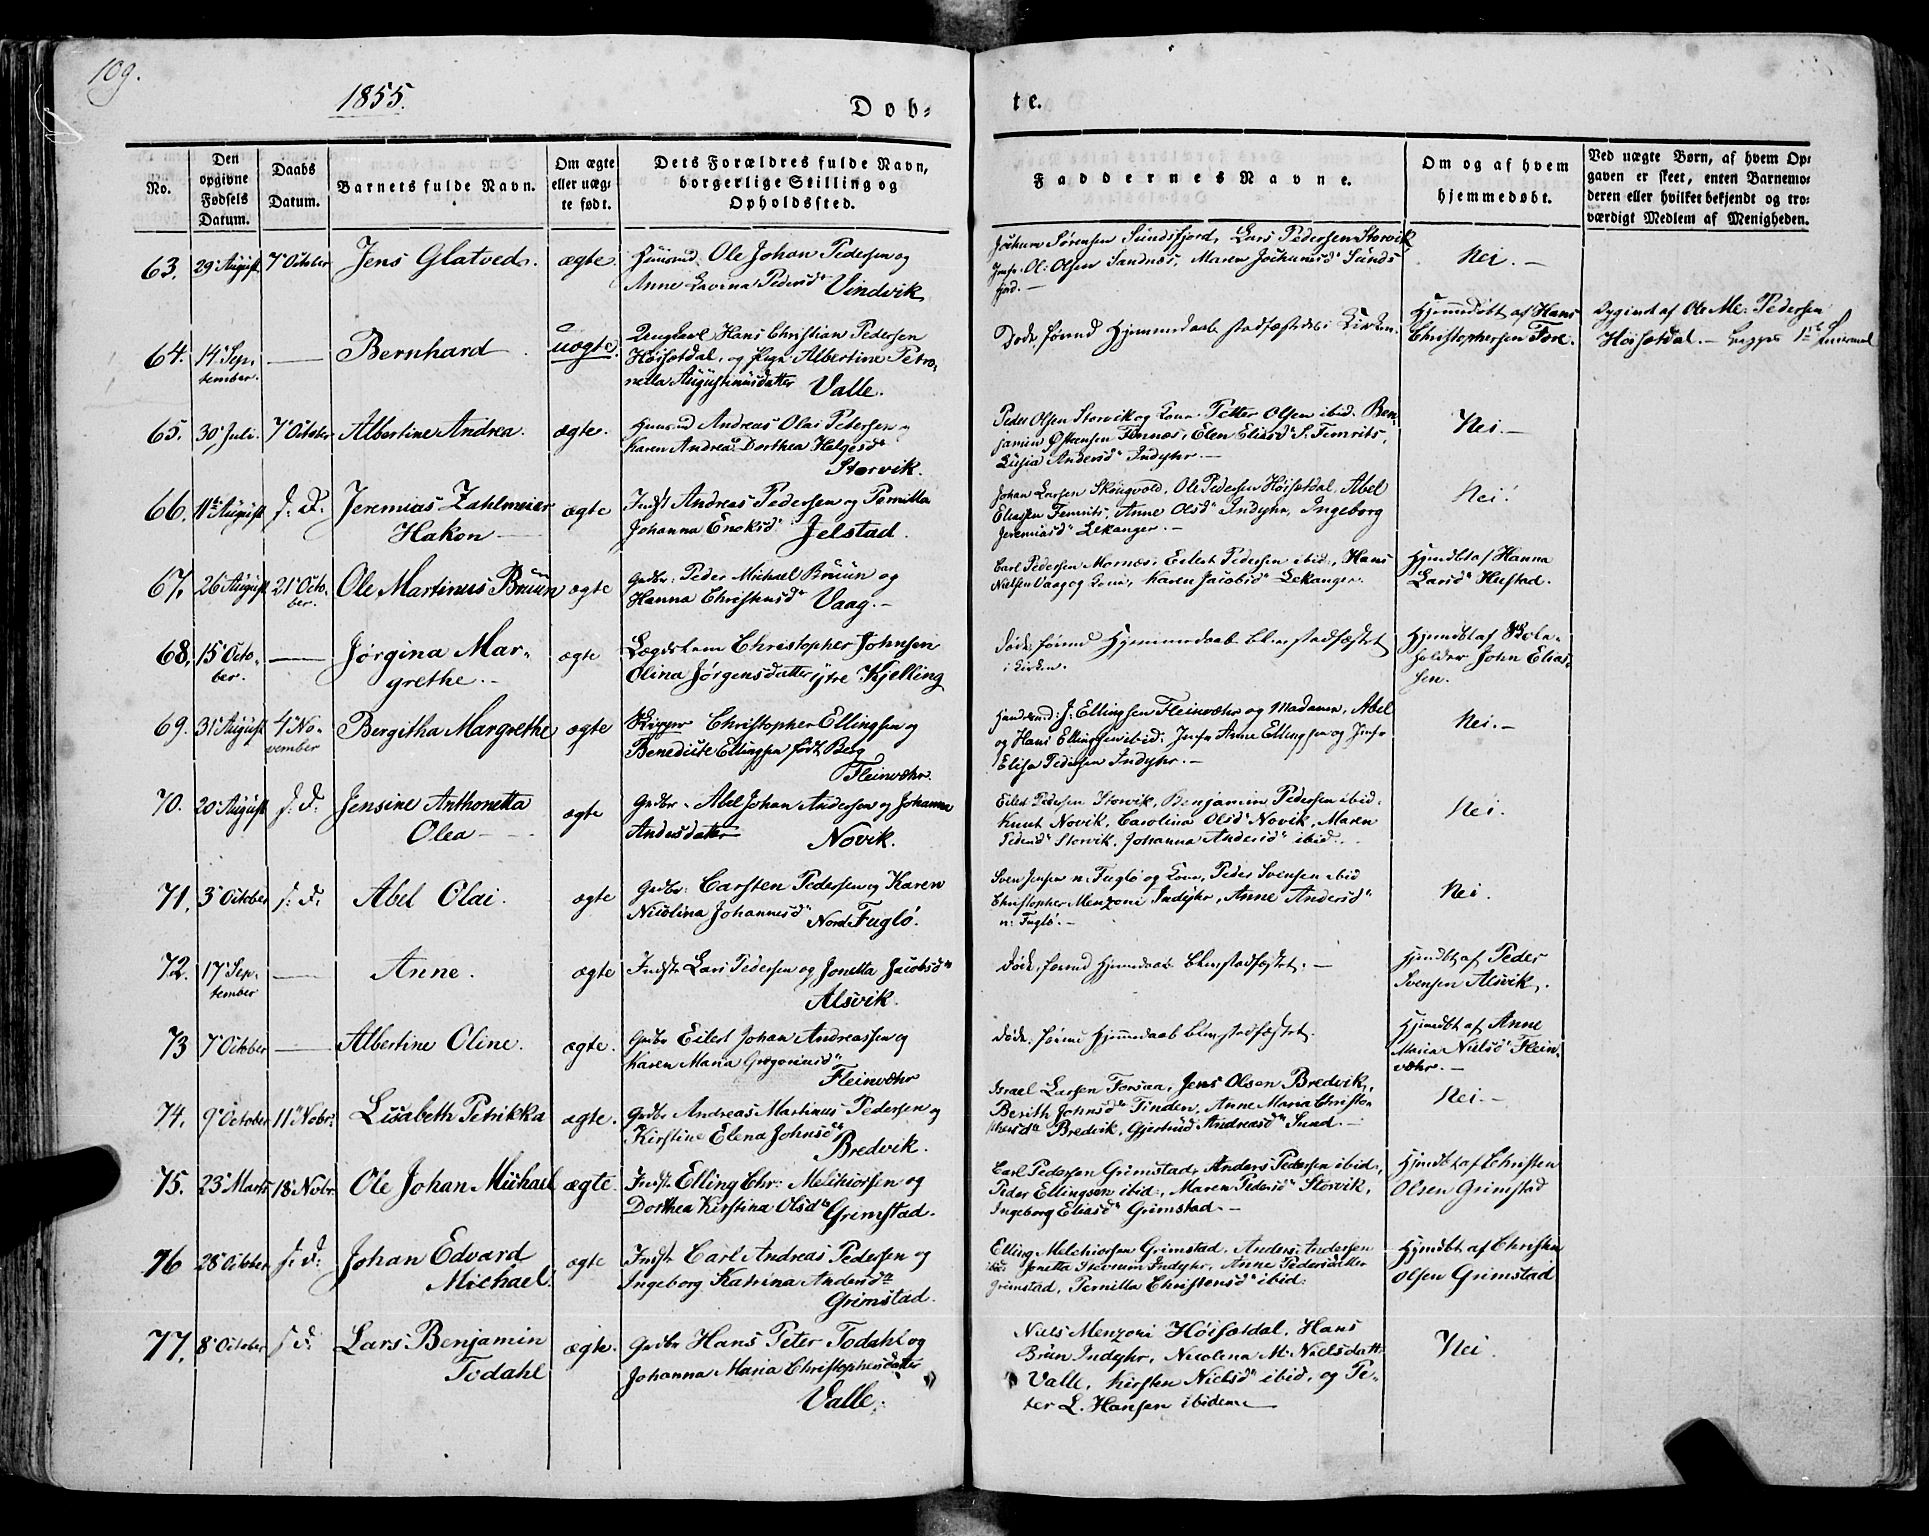 109.
1855.
Døb-
te.
No.
Den
opgivne
Fødsels
Datum.
Daabs
Datum.
Barnets fulde Navn.
Om ægte
eller uæg-
te født.
Dets Forældres fulde Navn,
borgerlige Stilling og
Opholdssted.
Faddernes Navne.
Om og af hvem
hjemmedøbt.
Ved uægte Børn, af hvem Op-
gaven er skeet, enten Barnemo-
deren eller hvilket bekjendt og tro-
værdigt Medlem af Menigheden.
63. 29 August 7 October Jens Glatved. ægte. Huusmd, Ole Johan Pedersen og
Anne Lavina Pedersd Vindvik
Jochum Sørensen Sundsfjord, Lars Pedersen Storvik
Ol: Olsen Sandnæs, Maren Jochumsd Sunds
fjord. –
Nei. –
64. 14 Sep-
tember. Bernhard uægte. Ungkarl Hans Christian Pedersen
Høisætdal, og Albertine Petro-
nella Augustinusdatter Valle.
Døde, forind Hjemmedaab stadfæstedes i Kirken.
Hjemmdøbt af Hans
Christophersen Fore.
Ole Mc: Pedersen
Høisætdal. –
65. 30 Juli. 7 October Albertine Andrea. ægte. Huusmd Andreas Olai Petersen og
Karen Andrea Dorthea Helgesd
Storvik.
Peder Olsen Storvik og Kone. Petter Olsen ibid. Ben-
jamin Østensen Finnæs, Elen Eliasd
Andersd Indyhr. –
Nei. –
66. 11te August s: D. Jeremias Zahlmeier
Hakon – ægte Indst Andreas Pedersen og Pernilla
Johanna Enoksd Jelstad.
Johan Larsen Skougvold, Ole Pedersen Høisætdal, Abel
Eliassen, Anne Olsd Indyhr, Ingeborg
Jeremiasd Lekanger. –
Nei.
67. 26 August 21 Octo-
ber. Ole Martinus Bruun ægte Gmbr: Peder Michael Bruun og
Hanna Christensd Vaag. –
Carl Pedersen Mornæs, Eilert Pedersen ibid, Hans
Nielsen Vaag og Kone, Karen Jacobsd Lekanger.
Hjmdbt af Hanna
Larsd Hustad.
68. 15 Octo-
ber. Jørgina Mar-
grethe. – ægte Christopher Johnsen
Olina Jørgensdatter ytre Kjelling
Døde, forind Hjemmedaab blev stadfæstet
i Kirken.
Hjmdbt af Skole-
holder John Elias-
sen.
69. 31 August 4 No-
vember Bergitha Margrethe ægte Skipper Christopher Ellingsen og
Benedicte Ellingsen født Berg
Fleinvær.
Handelsmd: J: Ellingsen Fleinvær og Madame, Abel
og Hans Ellingsen ibid: Jmfr Anne Ellingsen og Jmfr
Elisa Pedersen Indyhr. –
Nei. –
70. 20 August s: D: Jensine Anthonetta
Olea – ægte Gmbr. Abel Johan Andersen og Johanna
Andersdatter Novik.
Eilert Pedersen Storvik, Benjamin Pedersen ibid.
Knut Novik, Carolina Olsd Novik, Maren
Pedersd Storvik, Johanna Andersd ibid.
Nei.
71. 3 October s: D. Abel Olai. ægte Gmbr: Carsten Pedersen og Karen
Nicolina Johannesd Nord Fuglø.
Sven Jensen n: Fuglø og Kone, Peder Svensen ibid
Christopher Menzoni Indyhr, Anne Andersd
n: Fuglø. –
Nei.
72. 17 Sep-
tember Anne. ægte Indstr Lars Pedersen og Jonetta Jacobsd
Alsvik.
Døde, forind Hjmmdaab blev stadfæstet. –
Hjmdbt af Peder
Svensen Alsvik.
73 7 October Albertine Oline. ægte. Gmbr Eilert Johan Andreassen og
Karen Maria Gregoriusd
Fleinvær
Døde, forind Hjmmdaab blev stadfæstet.
Hjmdbt af Anne
Maria Nielsd Flein-
vær. –
74. 9 October 11 Nobr: Lisabeth Petrikka ægte. Gmbr Andreas Martinus Pedersen og
Kirstine Elena Johnsd
Bredvik.
Israel Larsen Forsaa, Jens Olsen Bredvik,
Berith Johnsd Finden, Anne Maria Christo-
phersd Bredvik, Gjertrud Andreasd Sund. –
Nei. –
75. 23 Marts 18 Nobr Ole Johan Michael ægte. Indst. Elling Chr: Melchiorsen og
Dorthea Kirstina Olsd Grimstad.
Carl Pedersen Grimstad, Anders Pedersen ibid,
Peder Ellingsen ibid:, Maren Pedersd Storvik,
Ingeborg Eliasd Grimstad. –
Hjmdbt af Christen
Olsen Grimstad
76 28 October s: D: Johan Edvard
Michael. ægte Indstr Carl Andreas Pedersen og
Ingeborg Katrina Andersd
Grimstad.
Elling Melchiorsen Grimstad, Anders Andersen
ibid Jonetta Indyhr, Anne Pedersdatter
Grimstad, Pernilla Christensd ibid:
Hjmdbt af Christen
Olsen Grimstad
77. 8 October s D: Lars Benjamin
Todahl ægte. Gmbr Hans Peter Todahl og
Johanna Maria Christophersdatter
Valle.
Niels Menzoni Høisætdal, Hans
Brun Indyhr, Nicolina M: Nielsdatt
Valle, Kirsten Nielsd ibid, og Pe-
ter L. Hansen ibidem
Nei